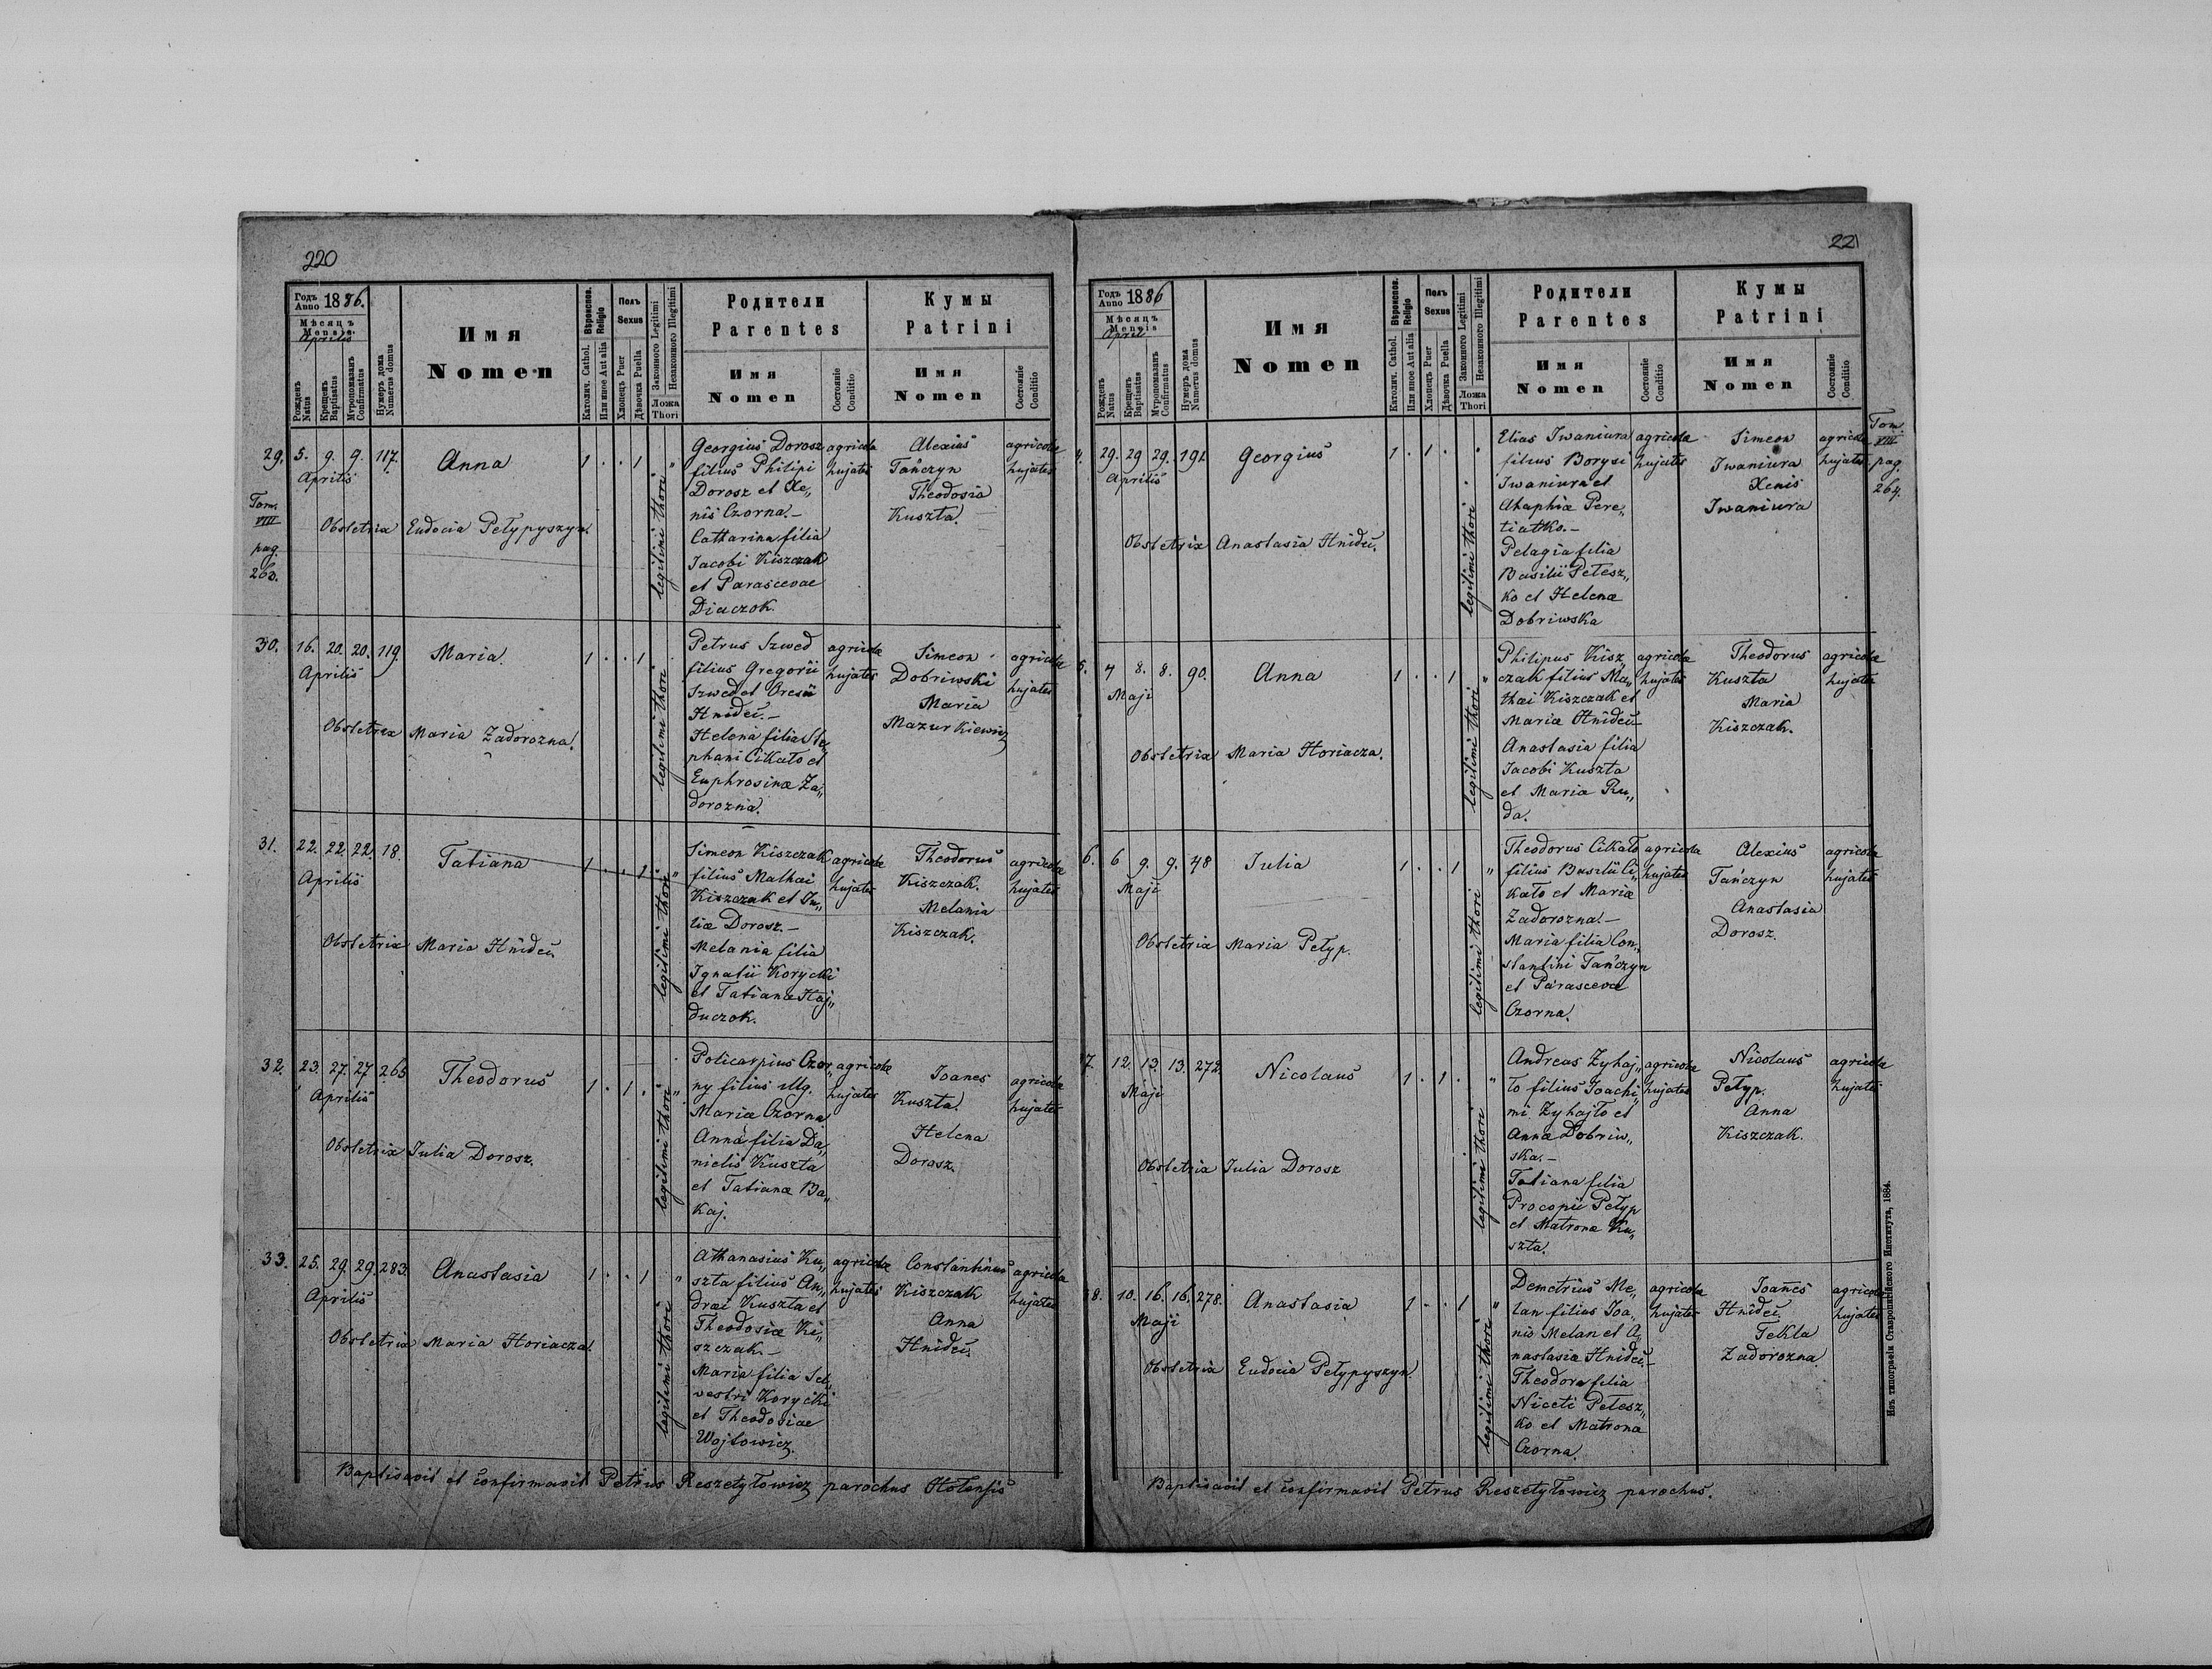 220
Годъ Anno 1886.
Мѣсяцъ
Mensis
Aprilis
Рожденъ Natus
Крещенъ Baptisatus
Мѵропомазанъ Confirmatus
Нумеръ дома Numerus domus
Имя
Nomen
Вѣроиспов. Religio
Католич. Cathol.
Или иное Aut alia
Полъ
Sexus
Хлопецъ Puer
Дѣвочка Puella
Законного Legitimi
Незаконного Illegitimi
Ложа
Thori
Родители
Parentes
Имя
Nomen
Состояніе Conditio
Кумы
Patrini
Имя
Nomen
Состояніе Conditio
29. 5. 9. 9. 117. Anna 1 . . 1 "
Aprilis
Tom. VIII pag.
Obstetrix Eudocia Pełypyszyn.
legitimi thori
Georgius Dorosz
filius Philipi
Dorosz et Xe„
nis Czorna.–
Cattarina filia
Jacobi Kiszczak
et Parascevae
Diaczok.
agricola
hujates
Alexius
Tańczyn
Theodosia
Kuszta.
agricolae
hujates
30. 16. 20. 20. 119. Maria. 1 . . 1
Aprilis
Obstetrix Maria Zadorozna.
legitimi thori
Petrus Szwed
filius Gregorii
Szwed et Oresii
Hnideí.–
Helena filia Ste„
phani Cikało et
Euphrosinæ Za„
dorozna.
agricolae
hujates
Simeon
Dobriwski
Maria
Mazurkiewicz
agricolae
hujates
31. 22. 22. 22. 18. Tatiana 1 . . 1 "
Aprilis
Obstetrix Maria Hnideí.
legitimi thori
Simeon Kiszczak
filius Mathai
Kiszczak et Ju„
liæ Dorosz.–
Melania filia
Ignatii Korycki
et Tatianæ Haj„
duczok.
agricolae
hujates
Theodorus
Kiszczak.
Melania
Kiszczak.
agricolae
hujates
32. 23. 27. 27. 265. Theodorus 1 . 1 . "
Aprilis
Obstetrix Julia Dorosz.
legitimi thori
Policarpius Czor„
ny filius illg.
Mariæ Czorna
Anna filia Da„
nielis Kuszta
et Tatianæ Ba„
kaj.
agricolae
hujates
Joanes
Kuszta.
Helena
Dorosz.
agricolae
hujates
33. 25. 29. 29. 283. Anastasia 1 . . 1 "
Aprilis
Obstetrix Maria Horiacza.
legitimi thori
Athanasius Ku„
szta filius An„
dræi Kuszta et
Theodosiæ Ki„
szczak.–
Maria filia Sel„
vestri Korycki
et Theodosiae
Wojtowicz.
agricolae
hujates
Constantinus
Kiszczak
Anna
Hnideí.
agricolae
hujates
Baptisavit et confirmavit Petrus Reszetyłowicz parochus
221
Годъ Anno 1886
Мѣсяцъ
Mensis
April
Рожденъ Natus
Крещенъ Baptisatus
Мѵропомазанъ Confirmatus
Нумеръ дома Numerus domus
Имя
Nomen
Вѣроиспов. Religio
Католич. Cathol.
Или иное Aut alia
Полъ
Sexus
Хлопецъ Puer
Дѣвочка Puella
Законного Legitimi
Незаконного Illegitimi
Ложа
Thori
Родители
Parentes
Имя
Nomen
Состояніе Conditio
Кумы
Patrini
Имя
Nomen
Состояніе Conditio
Tom. VIII pag. 264.
4. 29. 29. 29. 191 Georgius 1 . 1 .
Aprilis
Obstetrix Anastasia Hnideí.
legitimi thori
Elias Iwaniura
filius Borysi
Iwaniura et
Ahaphiæ Pere„
tiatko.–
Pelagia filia
Basilii Pełesz„
ko et Helenæ
Dobriwska
agricolae
hujates
Simeon
Iwaniura
Xenis
Iwaniura
agricolae
hujates
5. 4 8. 8. 90. Anna 1 . . 1 "
Maji
Obstetrix Maria Horiacza.
legitimi thori
Philipus Kisz„
czak filius Ma„
thæi Kiszczak et
Mariæ Hnideí–
Anastasia filia
Jacobi Kuszta
et Mariæ Ru„
da.
agricolae
hujates
Theodorus
Kuszta
Maria
Kiszczak.
agricolae
hujates
6. 6 9. 9. 48 Julia 1 . . 1 "
Maji
Obstetrix Maria Pełyp.
legitimi thori
Theodorus Cikało
filius Basilii Ci„
kało et Mariæ
Zadorozna.–
Maria filia Con„
stantini Tańczyn
et Parascevæ
Czorna.
agricola
hujates
Alexius
Tańczyn
Anastasia
Dorosz.
agricola
hujates
7. 12. 13. 13. 272. Nicolaus 1 . 1 . "
Maji
Obstetrix Julia Dorosz
legitimi thori
Andreas Zyhaj„
ło filius Joachi„
mi Zyhajło et
Annæ Dobriw„
ska.–
Tatiana filia
Procopii Pełyp
et Matronæ Ku„
szta.
agricolae
hujates
Nicolaus
Pełyp.
Anna
Kiszczak.
agricolae
hujates
8. 10. 16. 16. 278. Anastasia 1 . . 1 "
Maji
Obstetrix Eudocia Pełypyszyn.
legitimi thori
Demetrius Me„
lan filius Joa„
nis Melan et A„
nastasiæ Hnideí.–
Theodora filia
Niceti Pełesz„
ko et Matronæ
Czorna.
agricolae
hujates
Joanes
Hnideí
Tekla
Zadorozna
agricolae
hujates
Baptisavit et confirmavit Petrus Reszetyłowicz parochus.
Изъ типографіи Ставропигійского Института, 1884.